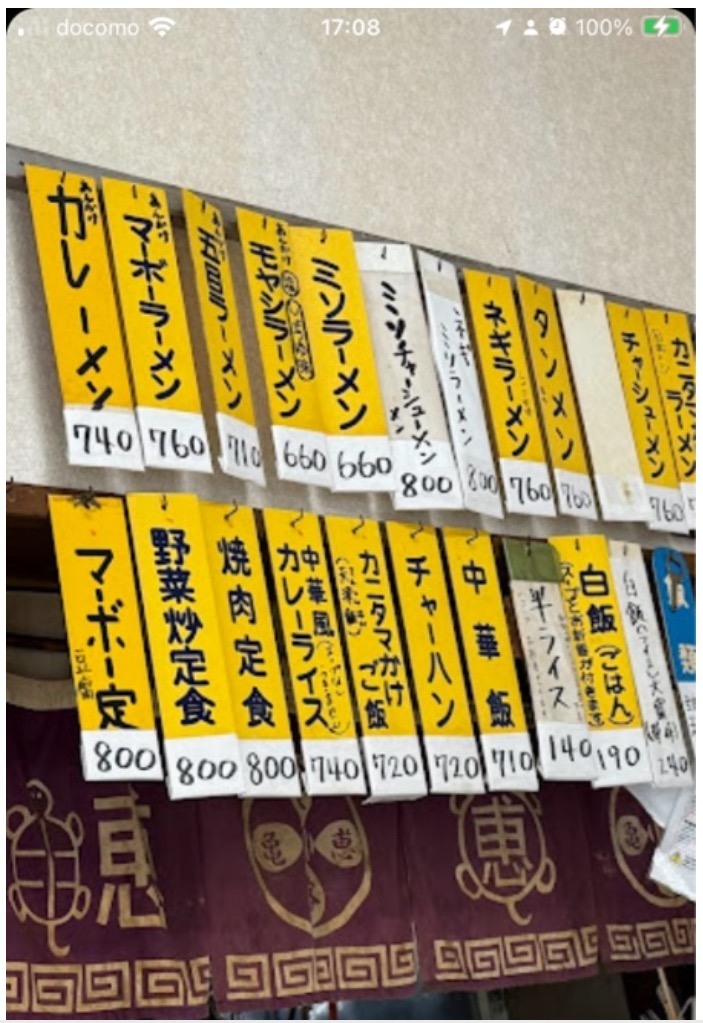 docomo 17:08 100%
あんかけ
カレーラーメン
740
あんかけ
マーボーラーメン
760
あんかけ
五目ラーメン
710
あんかけ
モヤシラーメン
660
ミソラーメン
660
ミソチャーシューメン
メン
800
ミソラーメン
800
ネギラーメン
760
タンメン
760
チャーシューメン
760
カニタマ
ラーメン
マーボー定
豆腐
800
野菜炒定食
800
焼肉定食
800
中華風
カレーライス
740
カニタマかけ
ご飯
(天津飯)
720
チャーハン
720
中華飯
710
半ライス
140
白飯(ごはん)
(スープとお新香が付きます)
190
大盛
240
類
恵
亀
恵
恵
亀